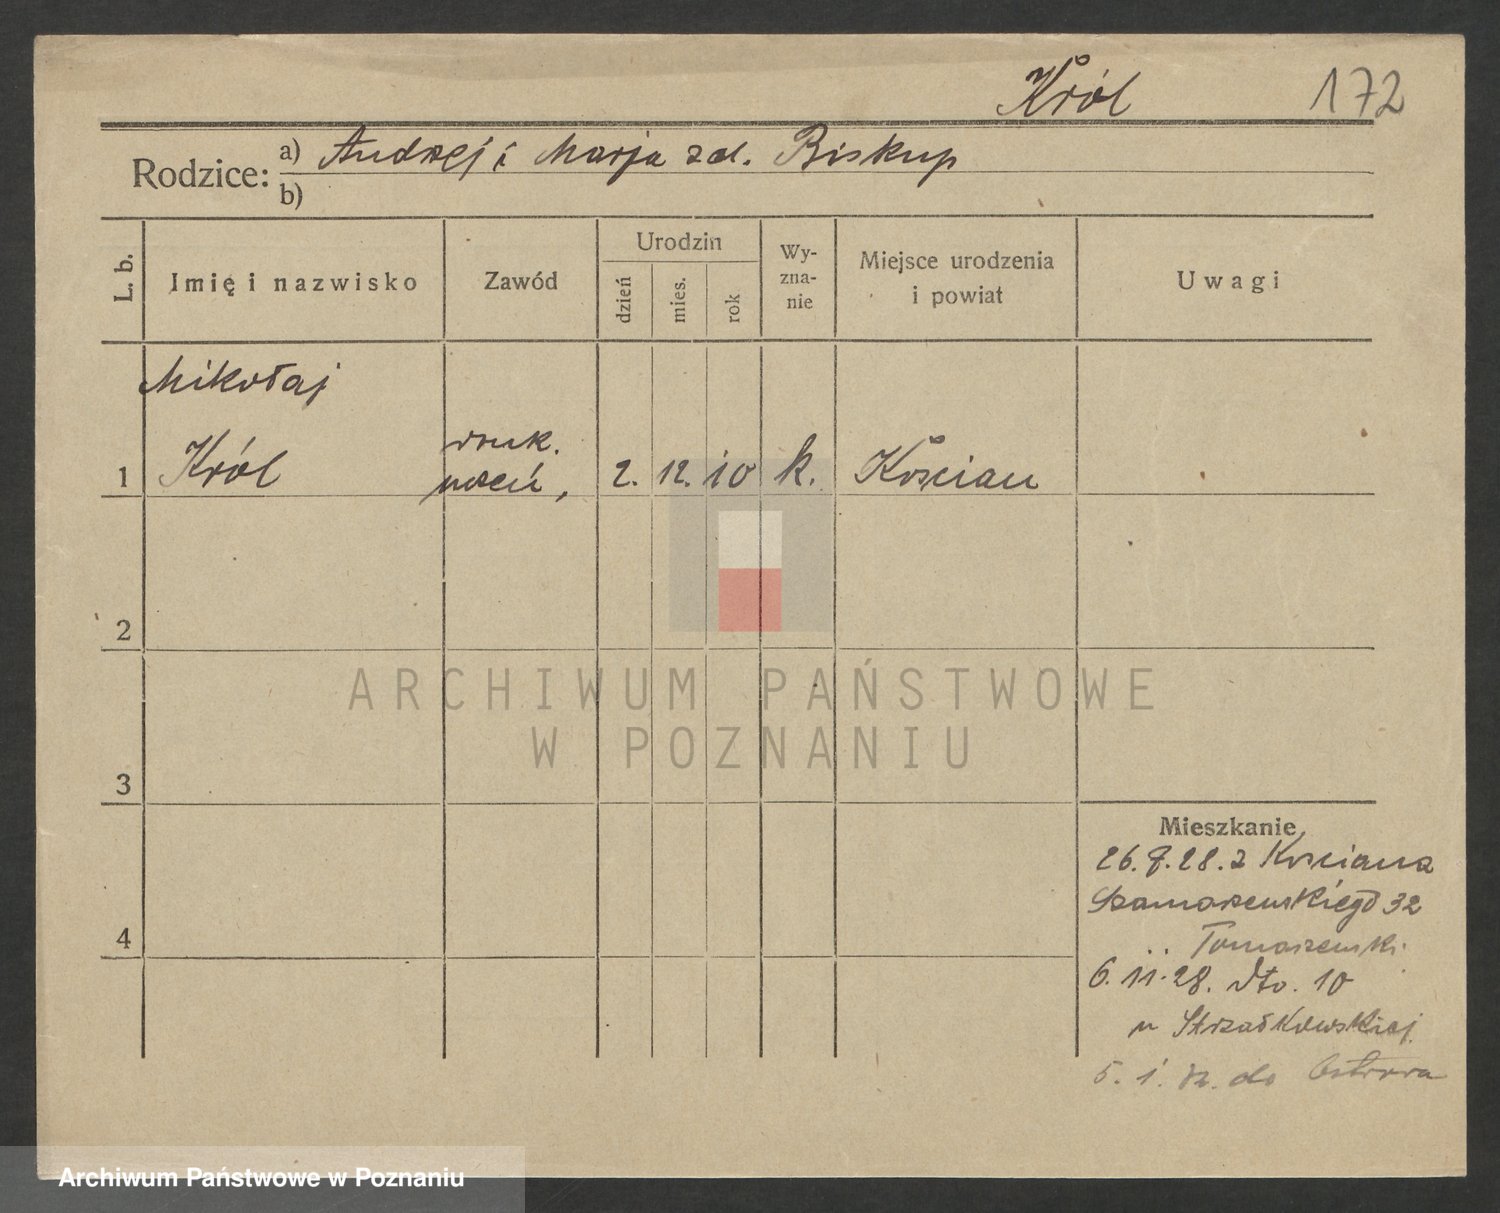 Król 172
Rodzice: a) Andrzej i Marja zd. Biskup
b)
L. b.
Imię i nazwisko
Zawód
Urodzin
dzień
mies.
rok
Wy-
zna-
nie
Miejsce urodzenia
i powiat
Uwagi
Mikołaj
druk.
1 Król uczeń, 2. 12. 10 k. Kościan
2
3
4
ARCHIWUM PAŃSTWOWE
W POZNANIU
Mieszkanie
28. z Kościana
Szamarzewskiego 32
Tomaszewski
6. 11. 28. dto. 10
u Strzałkowskiej
5. 1. do Ostrowa
Archiwum Państwowe w Poznaniu